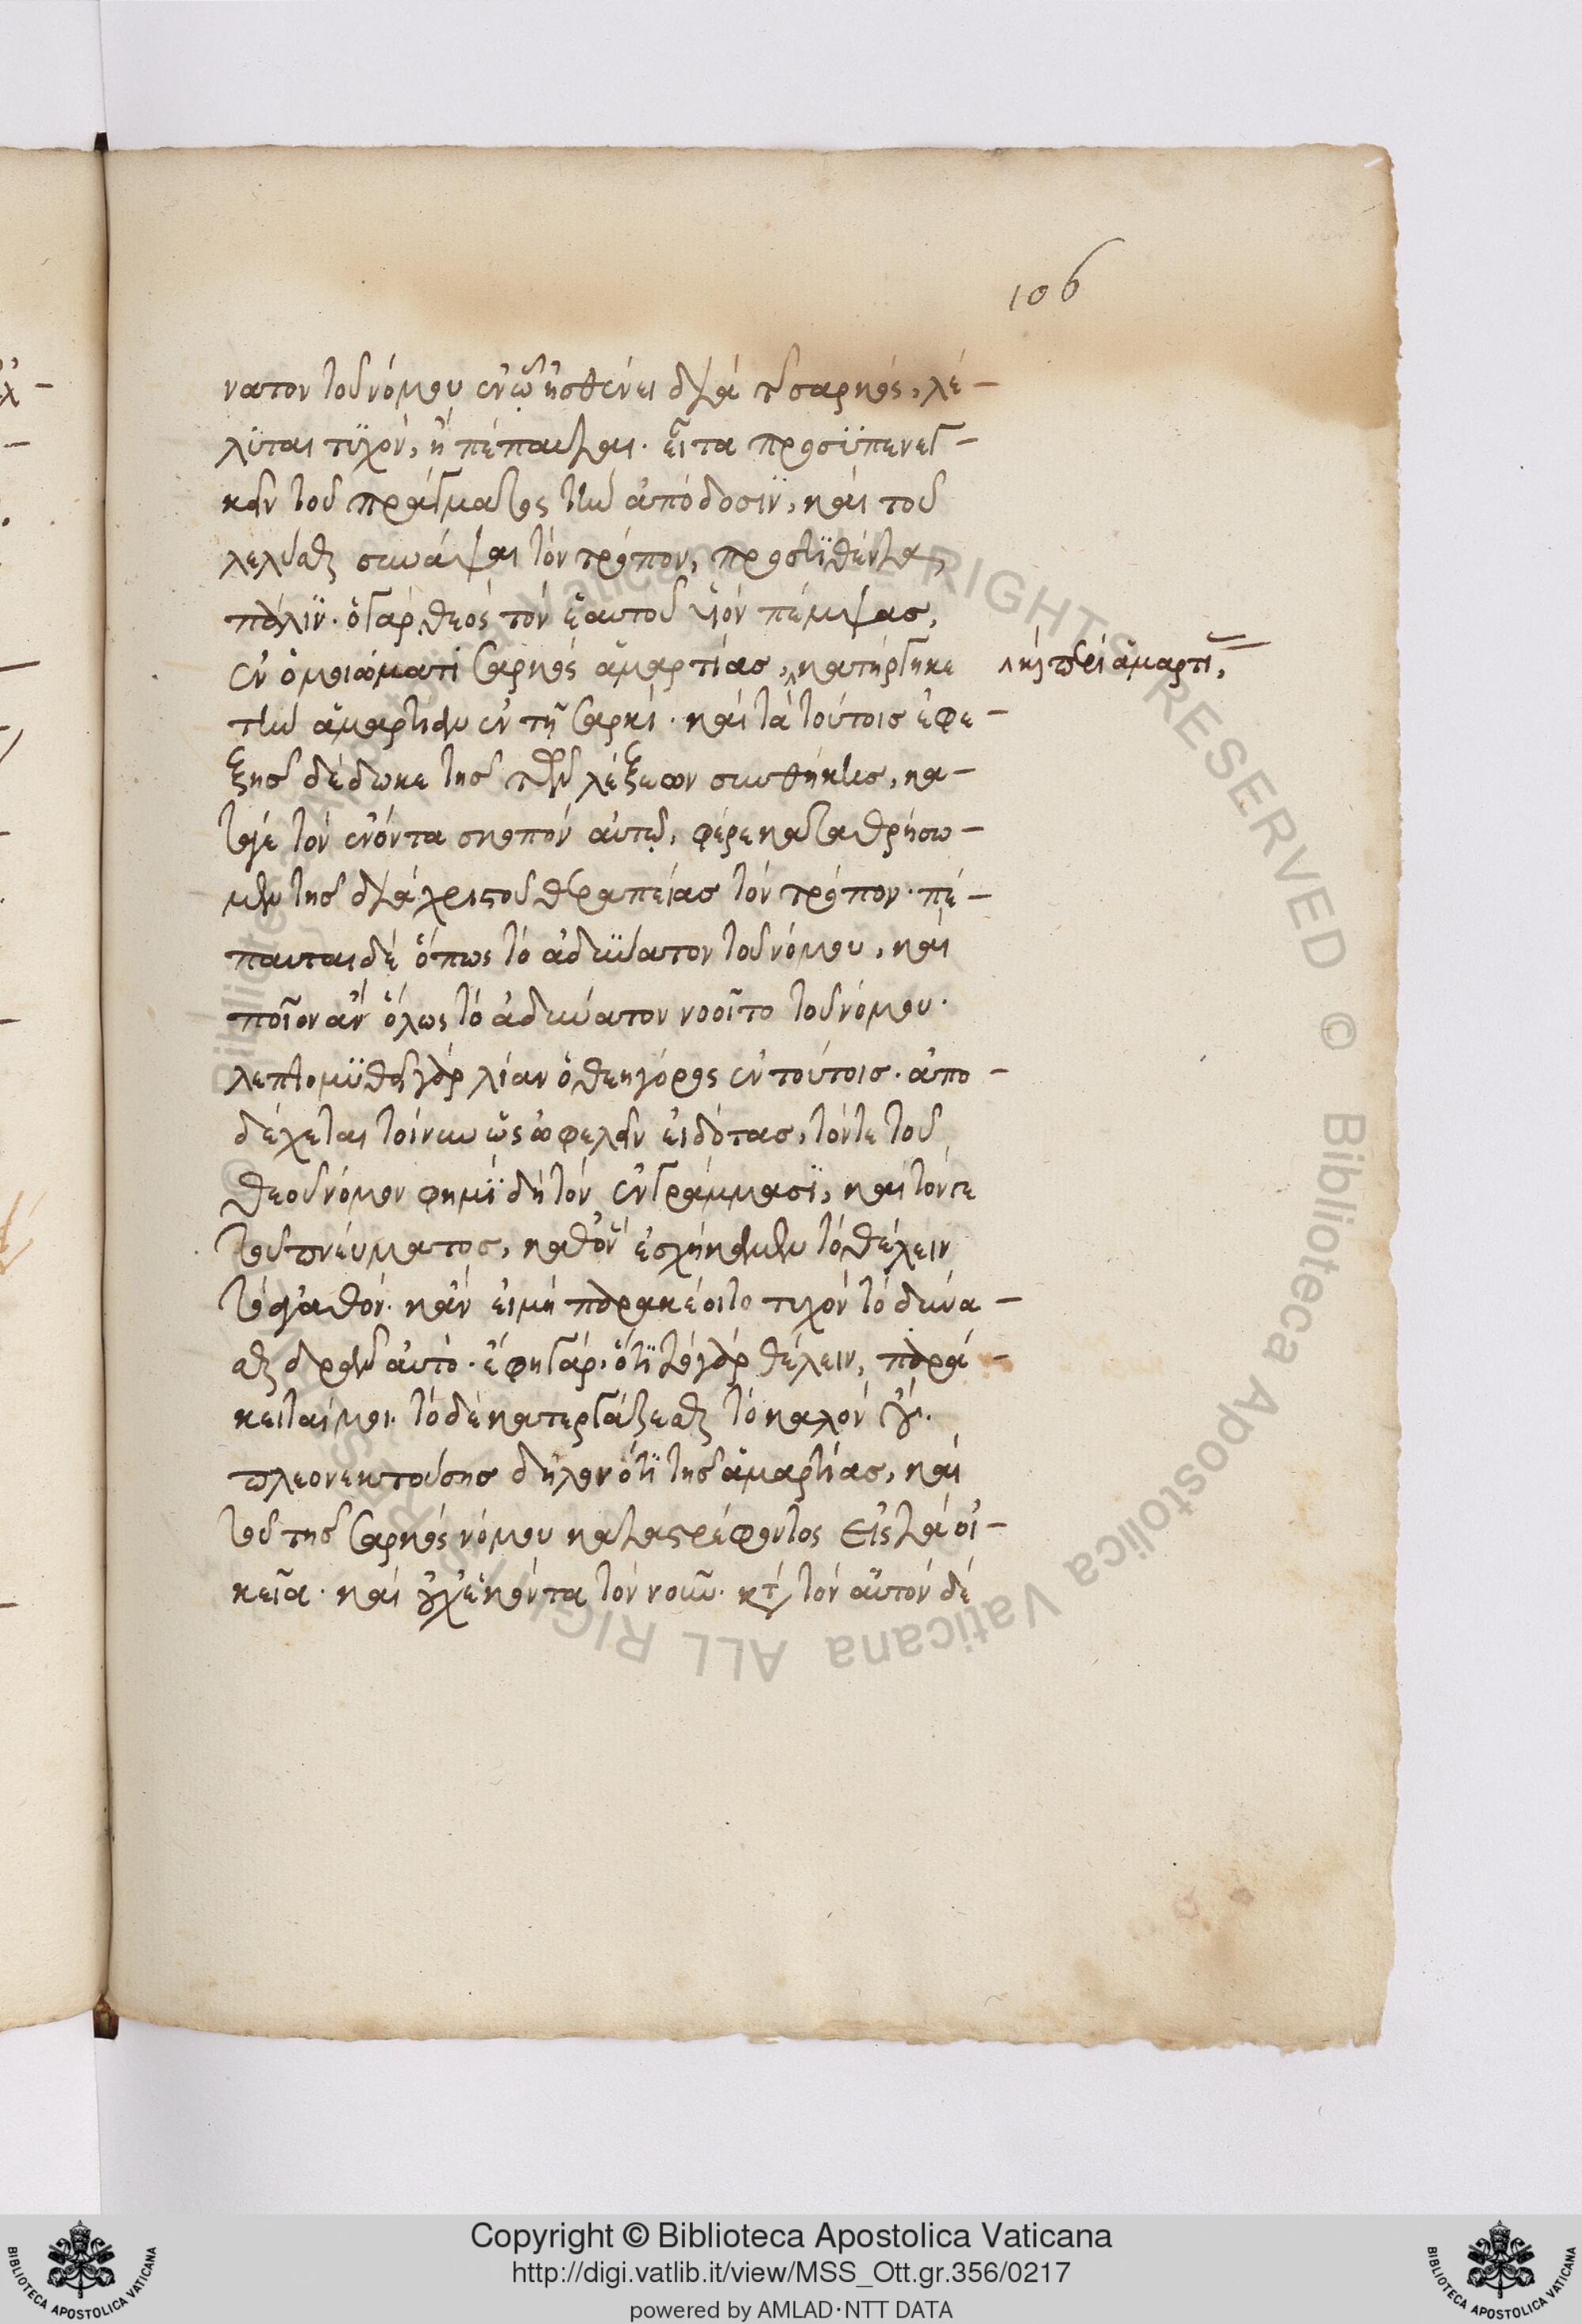 106
νατον τοῦ νόμου ἐν ᾧ ἠσθένει διὰ τ σαρκός, λέ-
λϋται τϋχὸν, ἢ πέπαυται. εἶτα προσϋπενεγ-
κεῖν τοῦ πράγματος τὴν ἀπόδοσϊν, καὶ τοῦ
λελύσθαι συνάψαι τὸν τρόπον, προστϊθέντα
πάλϊν. ὁ γὰρ θεὸς τὸν ἑαυτοῦ υἱὸν πέμψας,
ἐν ὁμοιώματι σαρκὸς ἁμαρτίας, κατήργηκε
καὶ περὶ ἁμαρτι
τὴν ἁμαρτίαν ἐν τῇ σαρκί. καὶ τὰ τούτοις ἐφε-
ξῆς δέδωκε τῆς τῶν λέξεων συνθήκης, κα-
τάγε τὸν ἐνόντα σκοπὸν αὐτῷ, φέρε καταθρήσω-
μεν τῆς διὰ χριστοῦ θεραπείας τὸν τρόπον. πέ-
παυται δὲ ὅπως τὸ ἀδϋνατον τοῦ νόμου, καὶ
ποῖον ἂν ὅλως τὸ ἀδύνατον νοοῖτο τοῦ νόμου.
λεπτομϋθεῖ γὰρ λίαν ὁ θεηγόρος ἐν τούτοις. ἀπο-
δέχεται τοίνυν ὡς ὠφελεῖν εἰδότας, τόν τε τοῦ
θεοῦ νόμον φημϊ δὴ τὸν ἐν γράμμασϊ, καὶ τόν τε
τοῦ πνεύματος, καθ' ὃν ἐσχήκαμεν τὸ θέλειν
τὸ ἀγαθόν. κἂν εἰ μὴ παρακέοιτο τυχὸν τὸ δύνα-
σθαι δρᾶν αὐτὸ. ἔφη γὰρ, ὅτϊ τὸ γὰρ θέλειν, παρά-
κειταί μοι. τὸ δὲ κατεργάζεσθαι τὸ καλὸν οὔ.
πλεονεκτούσης δηλονότϊ τῆς ἁμαρτίας, καὶ
τοῦ τῆς σαρκὸς νόμου καταστρέφοντος εἰς τὰ οἰ-
κεῖα. καὶ οὐχ ἑκόντα τὸν νοῦν. κτ τὸν αὐτὸν δὲ
Copyright © Biblioteca Apostolica Vaticana
http://digi.vatlib.it/view/MSS_Ott.gr.356/0217
powered by AMLAD·NTT DATA
BIBLIOTECA APOSTOLICA VATICANA
BIBLIOTECA APOSTOLICA VATICANA
© Biblioteca Apostolica Vaticana ALL RIGHTS RESERVED
© Biblioteca Apostolica Vaticana ALL RIGHTS RESERVED